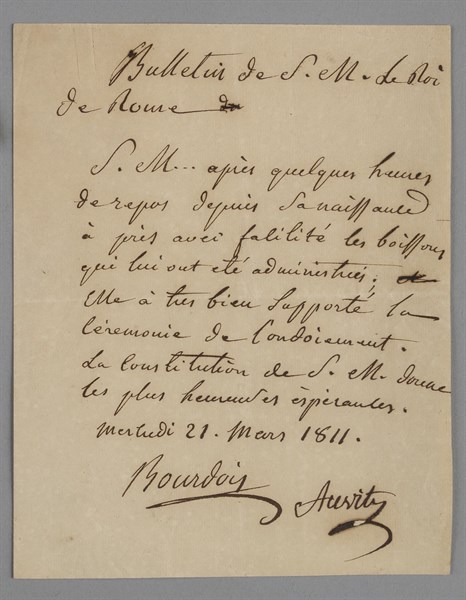 Bulletin de S. M. Le Roi
de Rome
S. M... après quelques heures
de repos depuis sa naissance
à pris avec falilité les boissons
qui lui ont été administrées;
Elle à très bien Supporté la
Céremonie de Londoiement.
La Constitution de S. M. donne
les plus heureuses éspérances.
Mercredi 21. Mars 1811.
Bourdois
Auvity